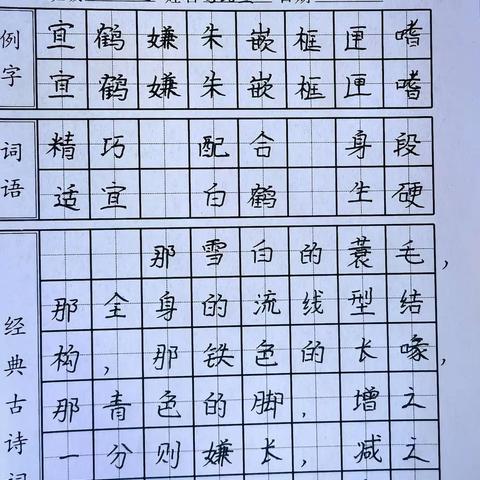 例字
宜鹤嫌朱嵌框匣嗜
宜鹤嫌朱嵌框匣嗜
词语
精巧 配合 身段
适宜 白鹤 生硬
经典古诗词
那雪白的蓑毛，
那全身的流线型结
构，那铁色的长喙，
那青色的脚，增之
一分则嫌长，减之